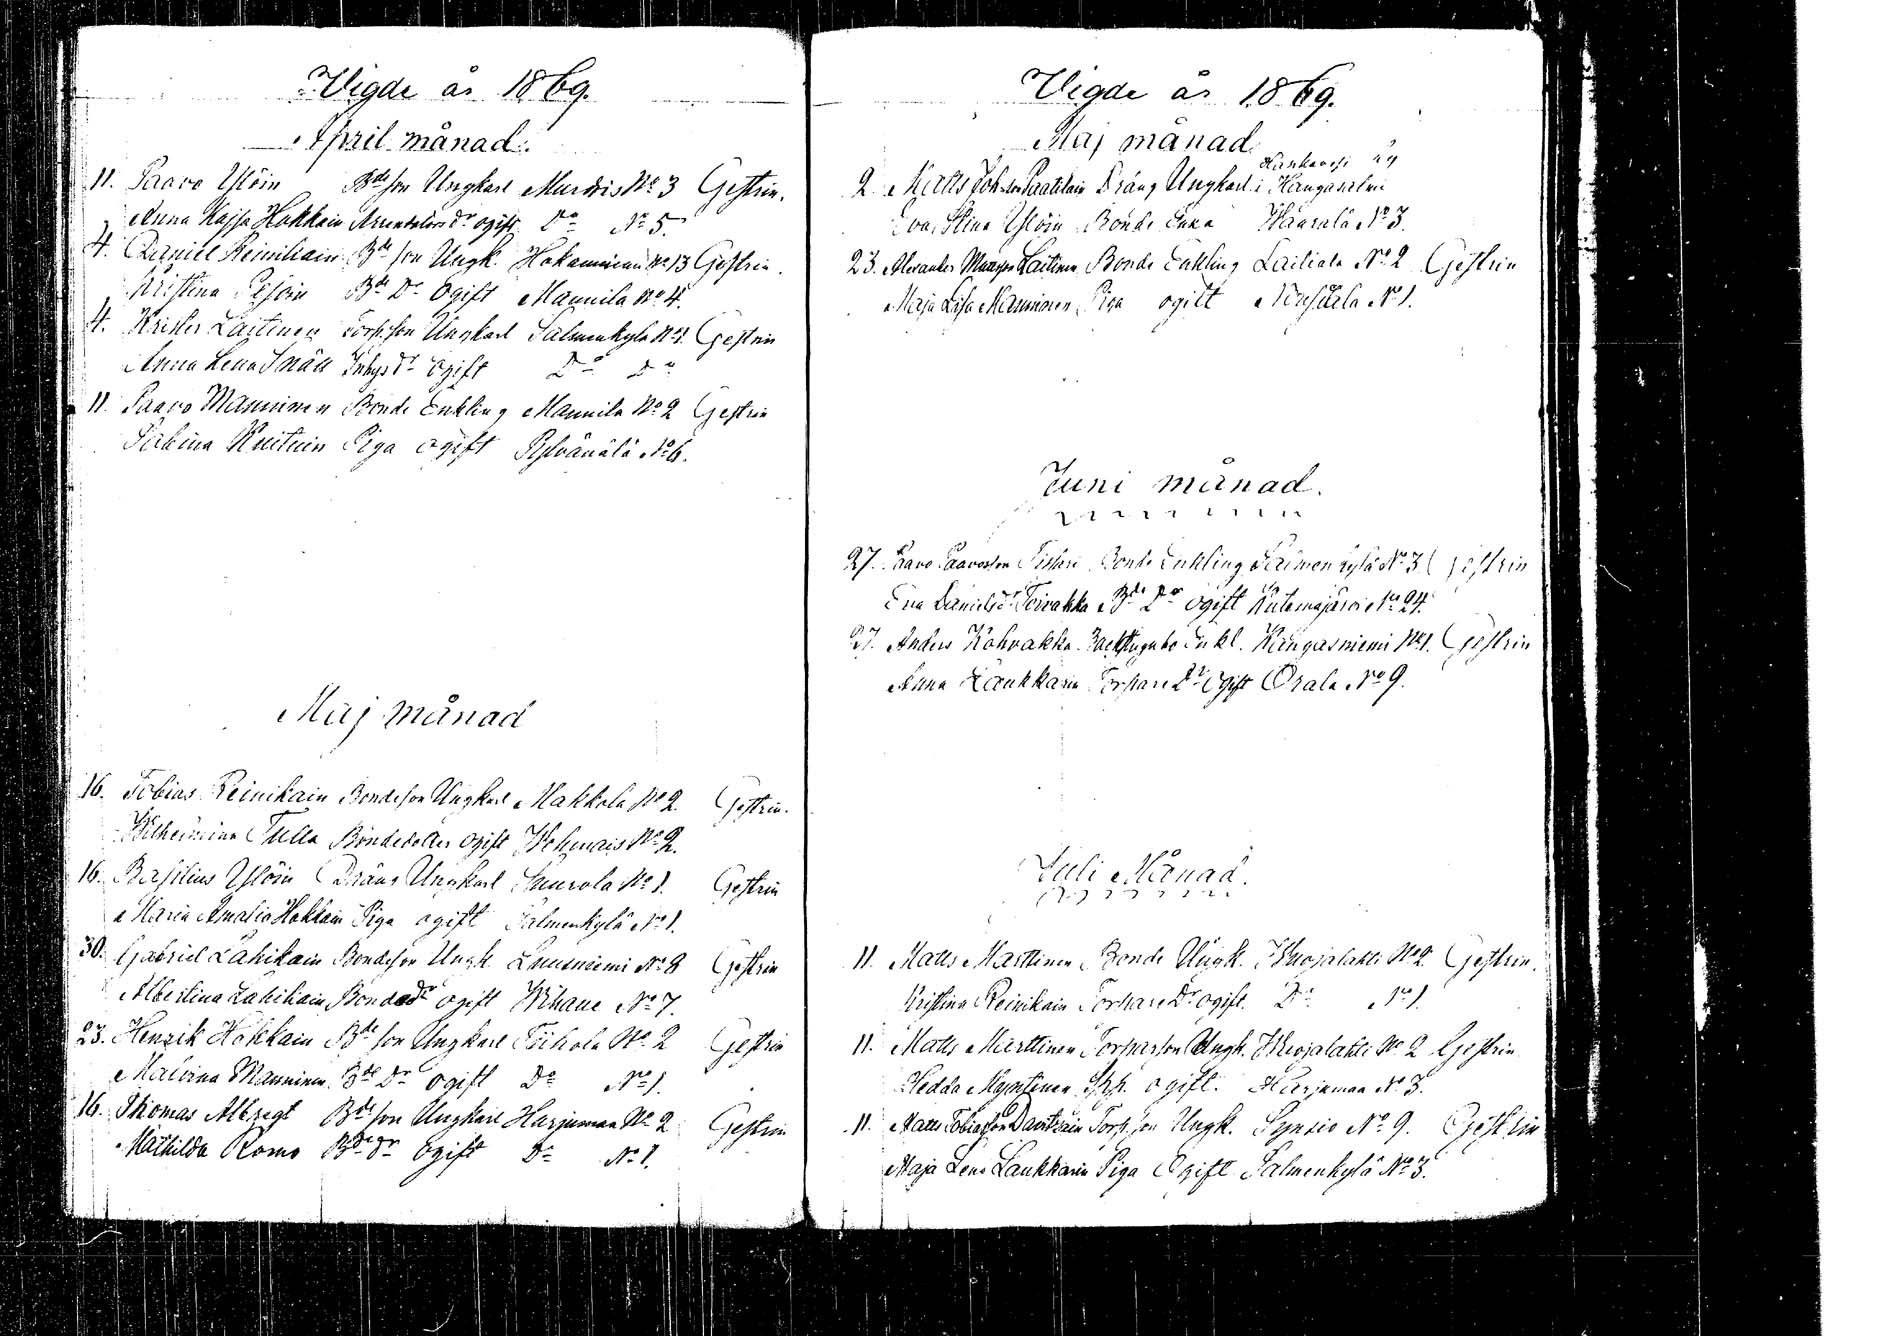 Vigde år 1869.
April månad.
11. Paavo Ylöin Bde son Ungkarl Murdois No 3 Gestrin.
Anna Kajsa Hokkain Arrendators dr ogift Do No 5.
4. Daniel Reinikain Bde son Ungk. Hokanniemi No 13 Gestrin.
Kristina Ylöin Bde Dr Ogift Mannila No 4.
4. Krister Laitinen Torp.son Ungkarl Salmenkylä No 1. Gestrin
Anna Lena Snäll Inhys dr ogift Do Do
11. Paavo Manninen Bonde Enkling Mannila No 2 Gestrin
Sabina Kuituin Piga ogift Pylvänälä No 6.
Maj månad
16. Tobias Reinikain Bondeson Ungkarl Makkola No 2 Gestrin.
Wilhelmina Tulla Bondedotter ogift Wehmais No 2.
16. Basilius Ylöin Dräng Ungkarl Saurola No 1. Gestrin
Maria Amalia Hokkain Piga ogift Salmenkylä No 1.
30. Gabriel Lahikain Bondeson Ungk. Luusniemi No 8 Gestrin
Albertina Lahikain Bonde dr ogift No 7.
23. Henrik Hokkain Bde son Ungkarl Tiihola No 2 Gestrin
Manninen Bde Dr ogift Do No 1.
16. Thomas Albregt Bde son Ungkarl Harjumaa No 2 Gestrin
Mathilda Romo Bde dr ogift Do No 1.
Vigde år 1869.
Maj månad
2. Matts Paatelain Dräng Ungkarl i Hangasalmi
Eva Stina Ylöin Bonde Enka No 3.
23. Alexander Mattsson Laitinen Bonde Enkling Lailiala No 2 Gestrin
Maja Lisa Manninen Piga ogift No 1.
Juni månad.
27. Paavo Paavosson Tissari Bonde Enkling Salmenkylä No 3 Gestrin
Eva Danielsdr Toivakka Bde Dr ogift Kutemajärvi No 24.
27. Anders Kohvakka Backstugubo Enkl. Kangasniemi No 1. Gestrin
Anna Laukkarin Torpare Dr Ogift Orala No 9.
Juli Månad.
11. Matts Marttinen Bonde Ungk. Kuojalahti No 2 Gestrin.
Kristina Reinikain Torpare Dr ogift. Do No 1.
11. Matts Marttinen Torparson Ungk. Kuojalahti No 2 Gestrin
Hedda Myntinen ogift. Harjumaa No 3.
11. Matts Tobiasson Davitsain Torp.son Ungk. Synsiö No 9. Gestrin
Maja Lena Laukkarin Piga Ogift Salmenkylä No 3.